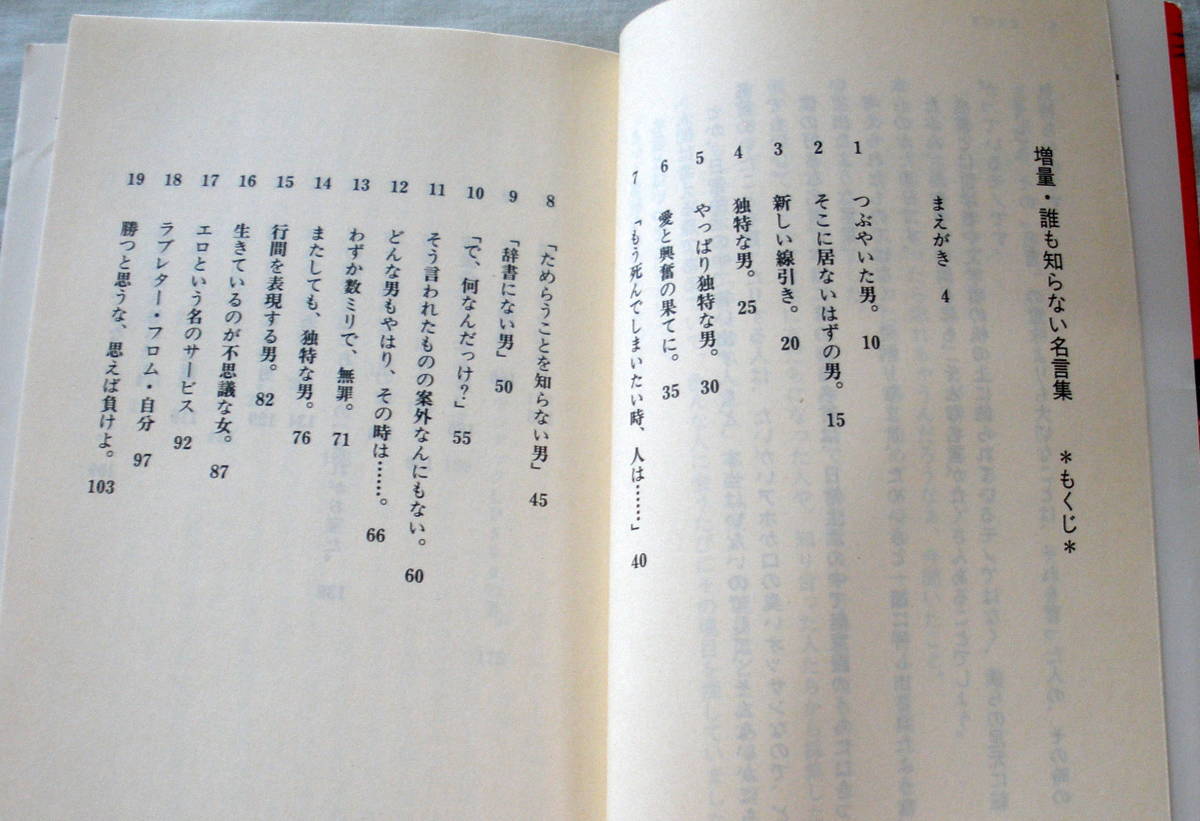 増量・誰も知らない名言集 *もくじ*
まえがき 4
1 つぶやいた男。 10
2 そこに居ないはずの男。 15
3 新しい線引き。 20
4 独特な男。 25
5 やっぱり独特な男。 30
6 愛と興奮の果てに。 35
7 「もう死んでしまいたい時、人は……」 40
8 「ためらうことを知らない男」 45
9 「辞書にない男」 50
10 「で、何なんだっけ?」 55
11 そう言われたものの案外なんにもない。 60
12 どんな男もやはり、その時は……。 66
13 わずか数ミリで、無罪。 71
14 またしても、独特な男。 76
15 行間を表現する男。 82
16 生きているのが不思議な女。 87
17 エロという名のサービス 92
18 ラブレター・フロム・自分 97
19 勝つと思うな、思えば負けよ。 103